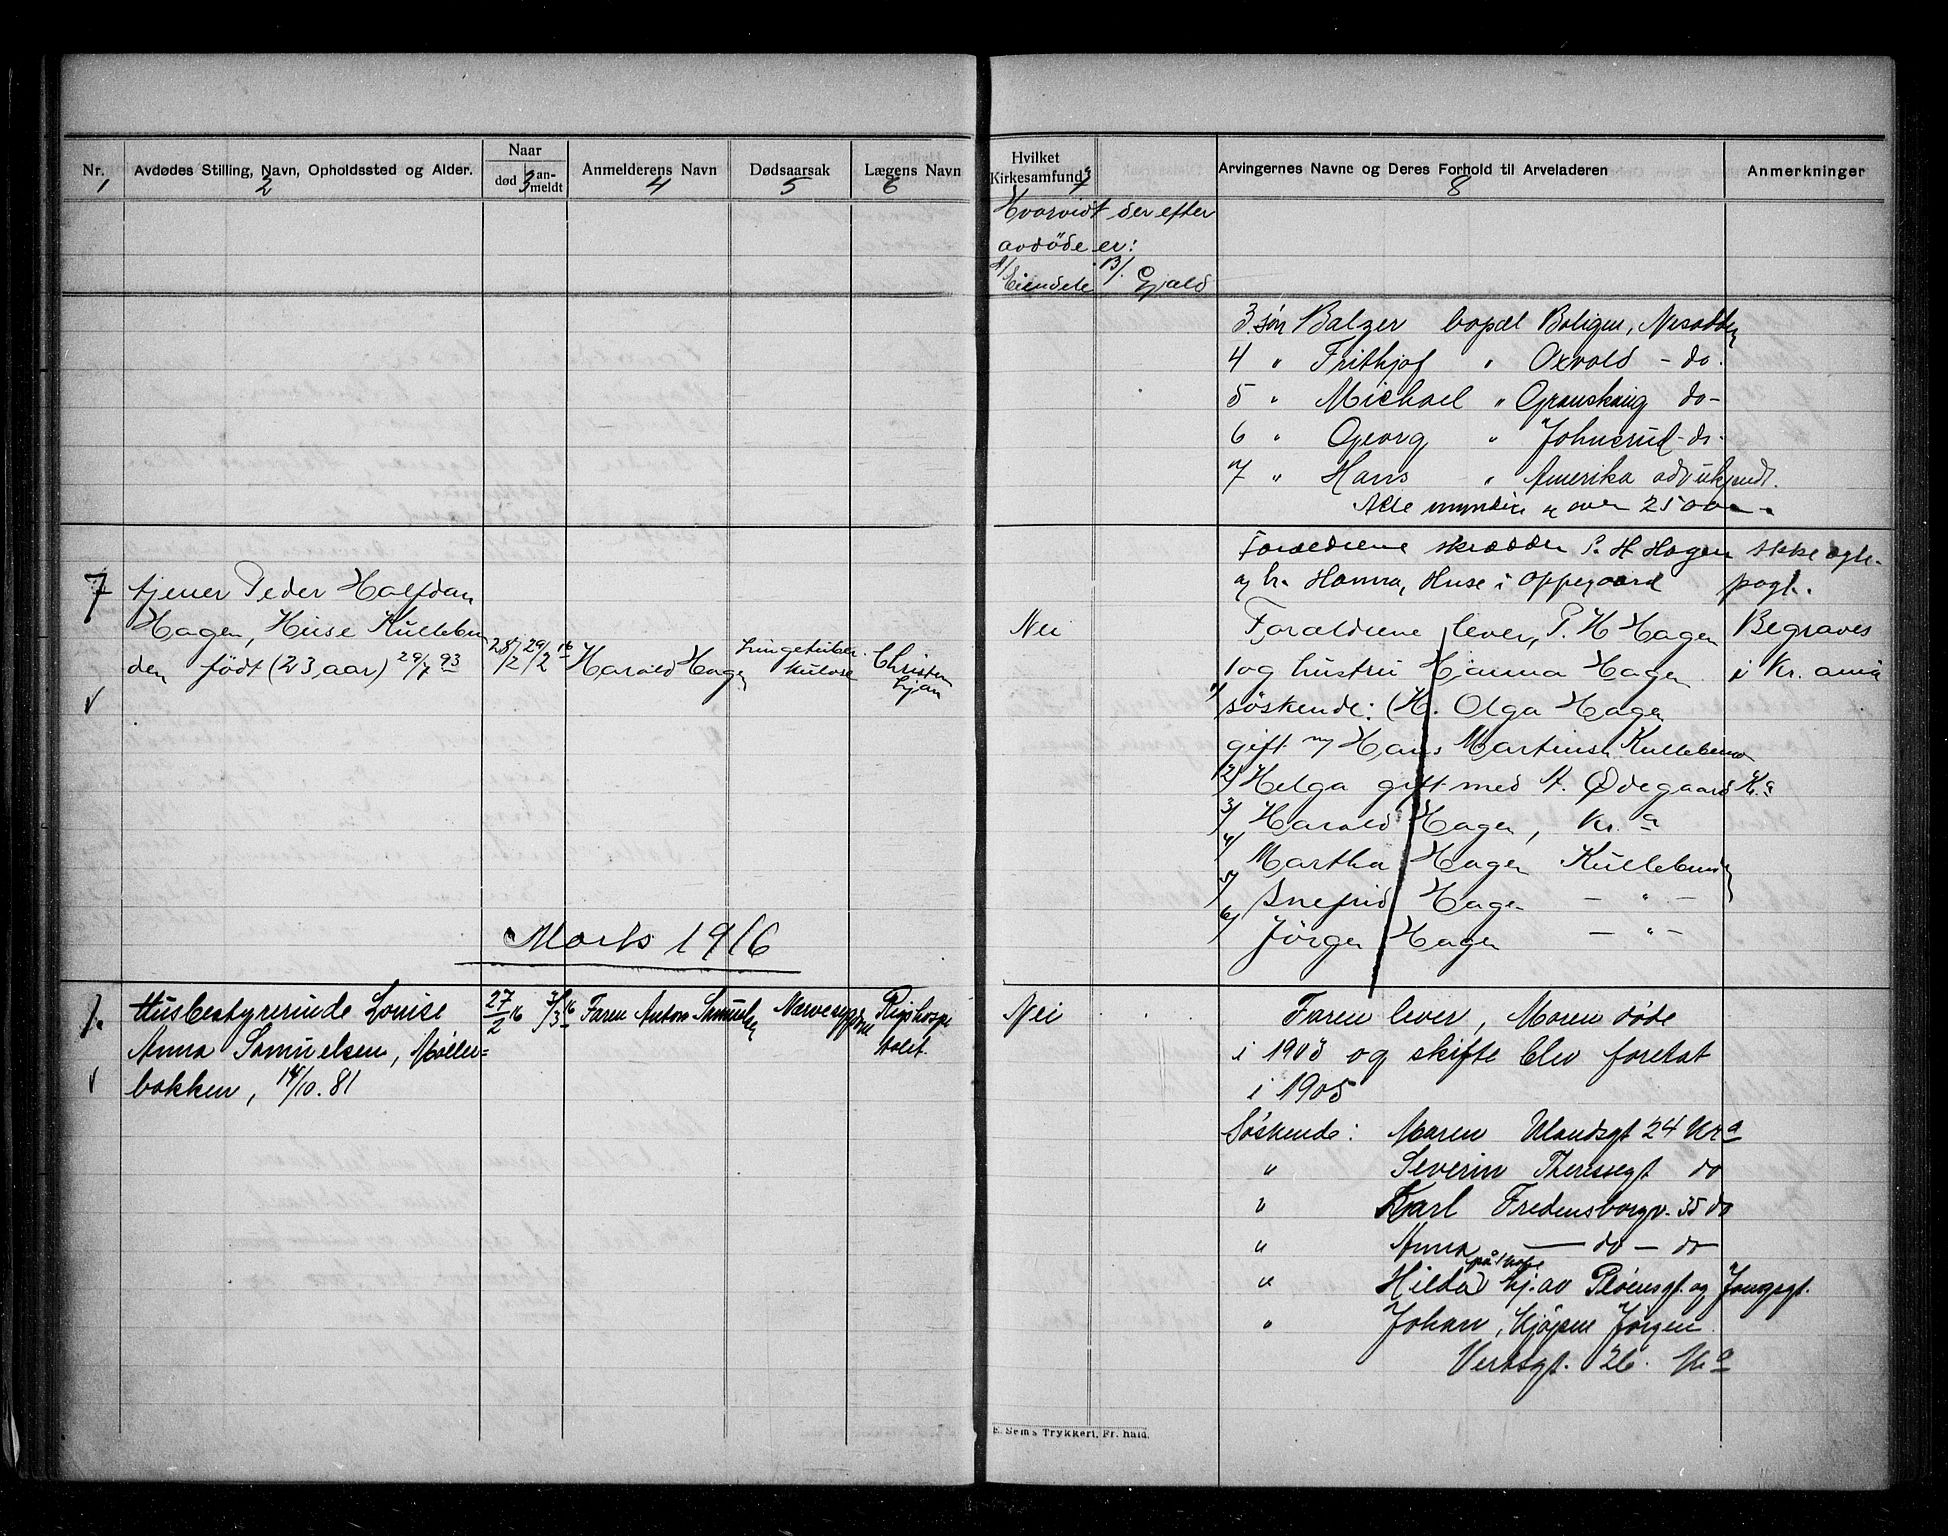 Nr. Avdødes Stilling, Navn, Opholdssted og Alder. Naar død anmeldt Anmelderens Navn Dødsaarsak Lægens Navn Hvilket Kirkesamfund Arvingernes Navne og Deres Forhold til Arveladeren Anmerkninger
1 2 3 4 5 6 7 8
Hvorvidt der efter
avdøde er:
A/ Eiendele B/. Gjæld
3. søn Balzer bopæl Boligen, Nesodden
4 " Frithjof " Oxvold - do.
5 " Michael " Granskaug do-
6 " Georg " Johnsrud - do-
7 " Hans " Amerika adr ukjendt.
Alle myndige og over 25 aar
Forældrene skrædder P. H. Hagen
og h. Hanna, Huse i Oppegaard
Ikke
7
tjener Peder Halfdan
Hagen, Huse Kullebun
den født (23 aar) 29/7 93
28/2 29/2 16
Harald Hagen
Lungetuber
kulose
Christen
Ljan
Nei
Forældrene lever, P. H Hagen
og hustru Hanna Hagen
søskende: (H. Olga Hagen
gift m/ Hans Martinsen Kullebund
2/ Helga gift med A. Ødegaard Kr.a
3/ Harald Hagen, Kr.a
4/ Martha Hagen Kullebund
5/ Snefrid Hagen — " —
6/ Jörgen Hagen — " —
Begraves
i Kr. ania
Marts 1916
1.
Husbestyrerinde Louise
Anna Samuelsen, Møller=
bakken, 14/10. 81
27/2 16 3/3 16
Faren Anton Samuelsen
Nervesygdom
Rigshospi
talet.
Nei
Faren lever, Moren døde
i 1903 og skifte blev foretat
i 1905
Søskende: Maren Ulandsgt 24 Kr.a
" Severin Theresegt do
" Karl Fredensborgv. 35 do
" Anna — do — do
" Hilda hj. av Pløensgt. og Youngsgt.
" Johan, Kjøpm Jörgen
Vertsgt. 26. Kr.a
E. Sem's Trykkeri, Fr.hald.